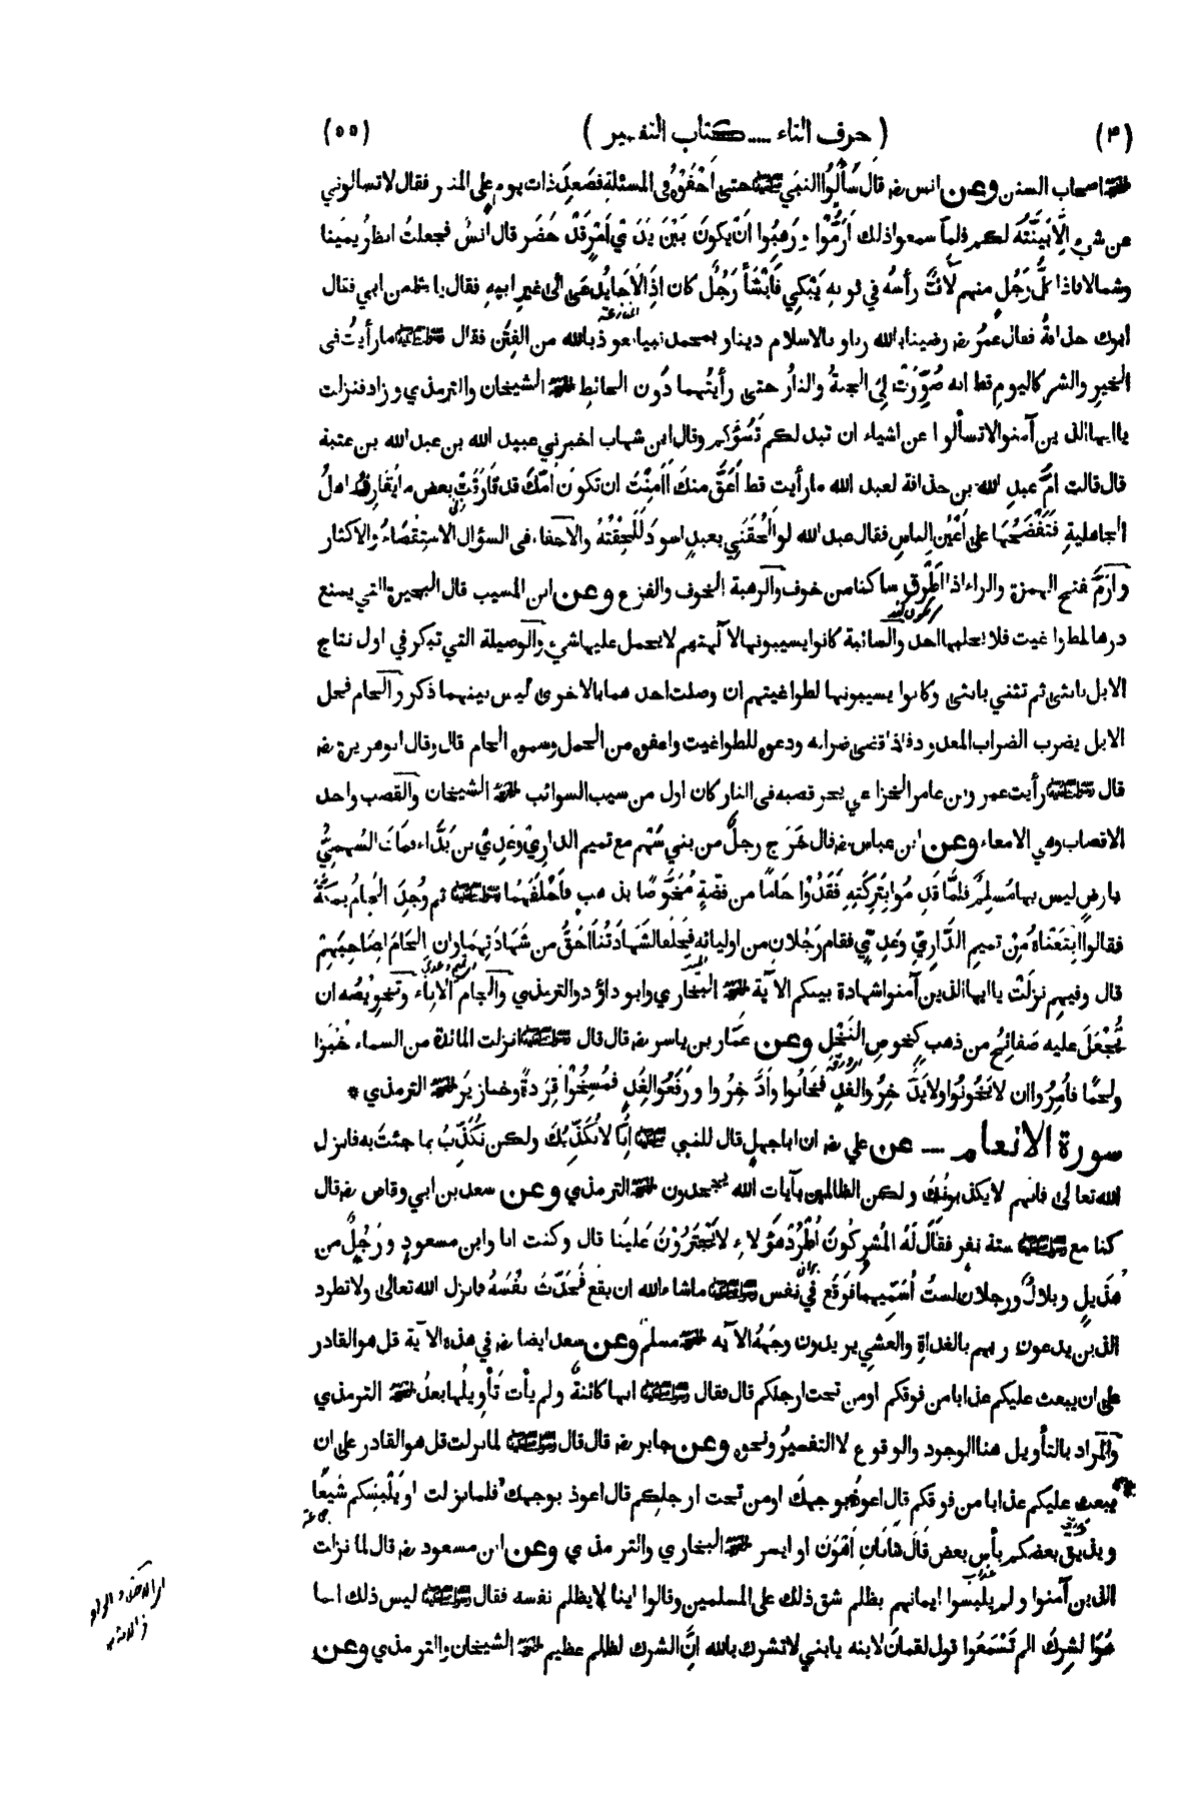 (٣) (حرف التاء .... كتاب التفسير) (٥٥)
اصحاب السنن وعن انس رضـ قال سَأَلُوا النبي ﷺ حتى اَحْفَوْهُ فى المسئلة فصَعِدَ ذات يوم على المنبر فقال لا تسالوني
عن شيءٍ اِلَّا بَيَّنْتُه لكم فلما سمعوا ذلك اَرَمُّوْا ورَهِبُوا اَنْ يكونَ بَيْنَ يَدَيْ اَمْرٍ قَدْ حَضَر قال انسٌ فجعلتُ انظُر يمينا
وشمالا فاذا كلُّ رَجُلٍ منهم لافٌّ رأسه في ثوبهِ يَبْكِي فَاَنْشَأَ رَجُلٌ كان اِذَا لَاحَا يُدعَى الى غيرِ ابيهِ فقال يا نبي الله من ابي فقال
ابوك حذافةُ فقال عمرُ رضـ رضينا بالله ربا وبالاسلام دينا وبمحمد نبيا نعوذ بالله من الفِتَن فقال ﷺ ما رأيتُ فى
الخيرِ والشر كاليومِ قط انه صُوِّرَتْ لِيَ الجنةُ والنارُ حتى رأيتُهما دُون الحائطِ الشيخان والترمذي وزاد فنزلت
يا ايها الذين آمنوا لا تسألوا عن اشياء ان تبد لكم تَسُؤْكم وقال ابن شهاب اخبرني عبيد الله بن عبد الله بن عتبة
قال قالت امُّ عبدِ الله بن حذافة لعبد الله ما رأيت قط اَعَقَّ منكَ أَاَمِنْتَ ان تكونَ اُمُّكَ قد قَارَفَتْ بعض ما يُقارِفُ اهلُ
الجاهليةِ فتَفْضَحُهَا على اَعْيُنِ الناسِ فقال عبد الله لو اَلْحَقَنِي بعبدٍ اسودَ لَلَحِقْتُهُ والاحفاء فى السؤال الاستِقْصَاءُ والاكثار
وأرَمَّ بفتح الهمزة والراء اذا اَطْرق ساكتا من خوف والرهبة الخوف والفزع وعن ابن المسيب قال البحيرة التي يمنع
درها للطواغيت فلا يحلبها احد والسائبة كانوا يسيبونها لآلهتهم لا يحمل عليها شيء والوصيلة التي تبكر في اول نتاج
الابل بانثى ثم تثني بانثى وكانوا يسيبونها لطواغيتهم ان وصلت احدهما بالاخرى ليس بينهما ذكر والحام فحل
الابل يضرب الضراب المعدود فاذا قضى ضرابه ودعوه للطواغيت واعفوه من الحمل وسموه الحام قال وقال ابو هريرة رضـ
قال ﷺ رأيت عمرو بن عامر الخزاعي يجر قصبه فى النار كان اول من سيب السوائب الشيخان والقصب واحد
الاقصاب وهي الامعاء وعن ابن عباس رضـ قال خَرَج رجلٌ من بني سَهْم مع تميم الدارِيّ وعَدِيِّ بن بَدَّاء فماتَ السَّهميُّ
بارضٍ ليس بها مُسلِمٌ فلمَّا قَدِمُوا بتَرِكَتِهِ فَقَدُوْا جَامًا من فضّةٍ مُخَوَّصًا بذهبٍ فاَحْلَفَهُمَا ﷺ ثم وُجِدَ الجَامُ بمَكّةَ
فقالوا ابْتَعْنَاهُ مِنْ تميمِ الدَّارِيِّ وعَدِيٍّ فقام رَجُلانِ من اوليائِه فحلَفَا لَشَهَادَتُنَا اَحَقُّ من شَهَادَتِهِمَا وان الجَامَ لِصَاحِبِهِمْ
قال وفيهم نزلَتْ يا ايها الذين آمنوا شهادة بينكم الآية البخاري وابو داؤد والترمذي والجام الاناء وتخويصُه ان
تُجْعَلَ عليه صَفائِحُ من ذهبٍ كخوصِ النَّخْل وعن عَمّار بن ياسر رضـ قال قال ﷺ انزلت المائدة من السماء خُبزا
ولحمًا فأُمِرُوا ان لا يَخُونُوا ولا يَدَّخِرُوا لغدٍ فخَانُوا واَدَّخَرُوا ورَفَعُوا لِغَدٍ فمُسِخُوْا قِرَدةً وخنازيرَ الترمذي *
سورة الانعام .... عن علي رضـ ان ابا جهلٍ قال للنبي ﷺ اِنَّا لا نُكَذِّبُكَ ولكن نُكَذِّبُ بما جئتَ به فانزل
الله تعالى فانهم لا يكذبونك ولكن الظالمين بآيات الله يجحدون الترمذي وعن سعد بن ابي وقاص رضـ قال
كنا مع ﷺ ستة نفرٍ فقَالَ لَهُ المُشرِكُونَ اُطْرُدْ هَؤُلاءِ لا يَجْتَرِؤُنَ عَلَيْنا قال وكنت انا وابن مسعودٍ ورَجُلٌ من
هُذَيلٍ وبلالٌ ورجلان لستُ اُسَمِّيهِمَا فَوَقَع فِي نفس ﷺ ما شاء الله ان يقع فَحَدَّثَ نفْسَهُ فانزل الله تعالى ولا تطرد
الذين يدعون ربهم بالغداةِ والعشي يريدون وجهَهُ الآية مسلم وعن سعد ايضا رضـ في هذه الآية قل هو القادر
على ان يبعث عليكم عذابا من فوقكم او من تحت ارجلكم قال فقال ﷺ انها كائنةٌ ولم يأت تَأويلُها بعدُ الترمذي
والمراد بالتأويل هنا الوجود والوقوع لا التفسيرُ ونحوه وعن جابر رضـ قال قال ﷺ لما نزلت قل هو القادر على ان
يبعث عليكم عذابا من فوقكم قال اعوذُ بوجهكَ او من تحت ارجلِكم قال اعوذ بوجهك فلما نزلت او يَلْبِسَكم شيعًا
ويذيقَ بعضكم بأس بعض قالَ هَاتَانِ اَهْوَن او ايسر البخاري والترمذي وعن ابن مسعود رضـ قال لما نزلت
الذين آمنوا ولم يلبسوا ايمانهم بظلم شق ذلك على المسلمين وقالوا اينا لا يظلم نفسه فقال ﷺ ليس ذلك انما
هُوَ الشركَ الم تَسْمَعُوا قول لقمانَ لابنه يا بني لا تشرك بالله انَّ الشرك لظلم عظيم الشيخان والترمذي وعن